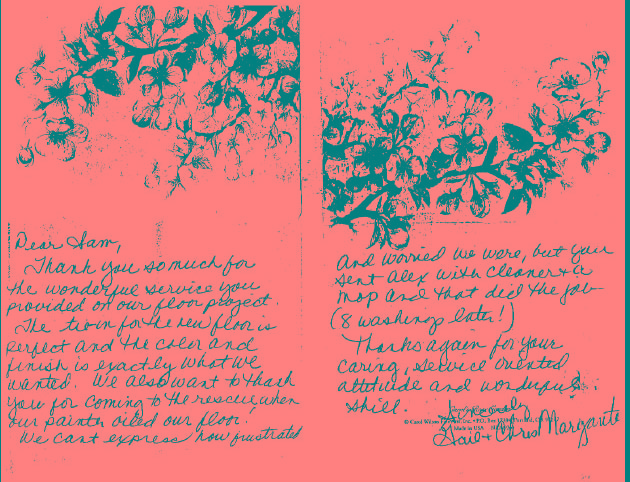 Dear Sam,
Thank you so much for
the wonderful service you
provided on our floor project.
The trim for the new floor is
perfect and the color and
finish is exactly what we
wanted. We also want to thank
you for coming to the rescue, when
our painter oiled our floor.
We cant express how frustrated
and worried we were, but you
sent Alex with cleaner + a
mop and that did the job
(8 washings later!)
Thanks again for your
caring, service oriented
attitude and wonderful
skill.
Sincerely
© Carol Wilson Fine Arts, Inc. • P.O. Box
Made in USA
Gail + Chris Margante